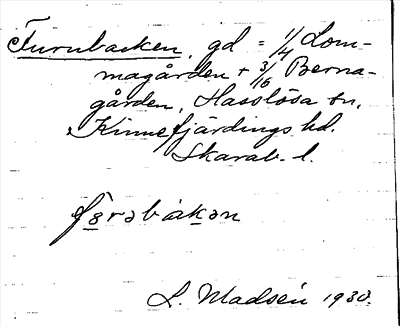 Furubacken, gd = 1/4 Lom-
magården + 3/16 Berna-
gården, Hasslösa sn,
Kinnefjärdings hd.
Skarab. l.
L. Madsén 1930.